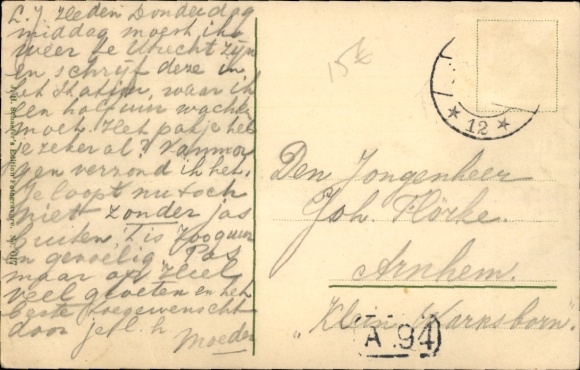 L. J. Heden Donderdag
middag moest ik
weer te Utrecht zijn
en schrijf deze in
het Station, waar ik
een half uur wachten
moet. Het pakje heb
je zeker al? Vanmor
gen verzond ik het.
Je loopt nu toch
niet zonder jas
buiten, 't is zoo guur
en
maar op. Heel
veel groeten en het
beste toegewenscht
door je l. h.
Moeder
15€
* 12 *
Den Jongenheer
Joh. Flörke.
Arnhem.
"Klein Warnsborn".
A 94